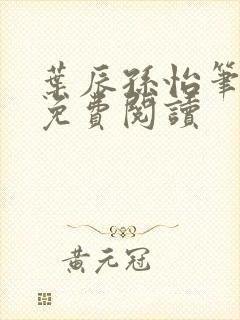 葉辰孫怡筆
免費閱讀
黃元冠